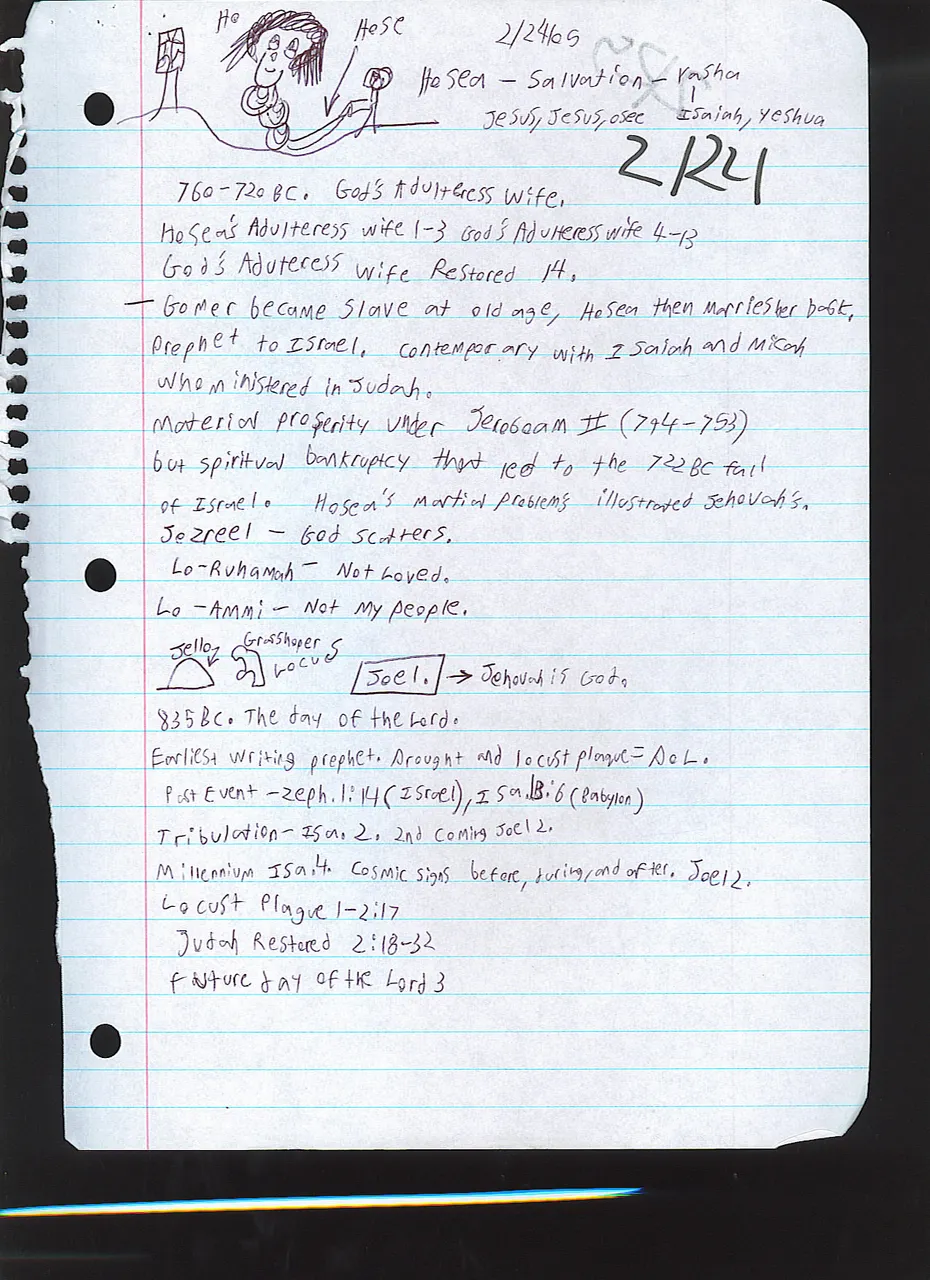 Ho
Hose
2/24/09
Hosea – Salvation – Yasha
Jesus, Jesus, osee Isaiah, Yeshua
2/24
760-720 BC. God's Adulteress Wife.
Hosea's Adulteress wife 1-3 God's Aduteress wife 4-13
God's Aduteress Wife Restored 14.
– Gomer became Slave at old age, Hosea then Marries her back.
Prophet to Israel. Contemporary with Isaiah and Micah
who ministered in Judah.
Material prosperity under Jeroboam II (794-753)
but spiritual bankruptcy that led to the 722 BC fall
of Israel. Hosea's Martial Problems illustrated Jehovah's.
Jezreel – God Scatters.
Lo-Ruhamah – Not Loved.
Lo-Ammi – Not My people.
Jello
Grasshoper
Locus
Joel. → Jehovah is God.
835 BC. The day of the Lord.
Earliest writing prophet. Drought and locust plague = DoL.
Past Event – Zeph. 1:14 (Israel), Isa. 13:6 (Babylon)
Tribulation – Isa. 2. 2nd Coming Joel 2.
Millennium Isa. 4. Cosmic signs before, during, and after. Joel 2.
Locust Plague 1-2:17
Judah Restored 2:18-32
Future day of the Lord 3